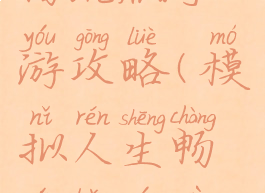 yóu gōng lüè mó
游攻略(模
nǐ rén shēng chàng
拟人生畅